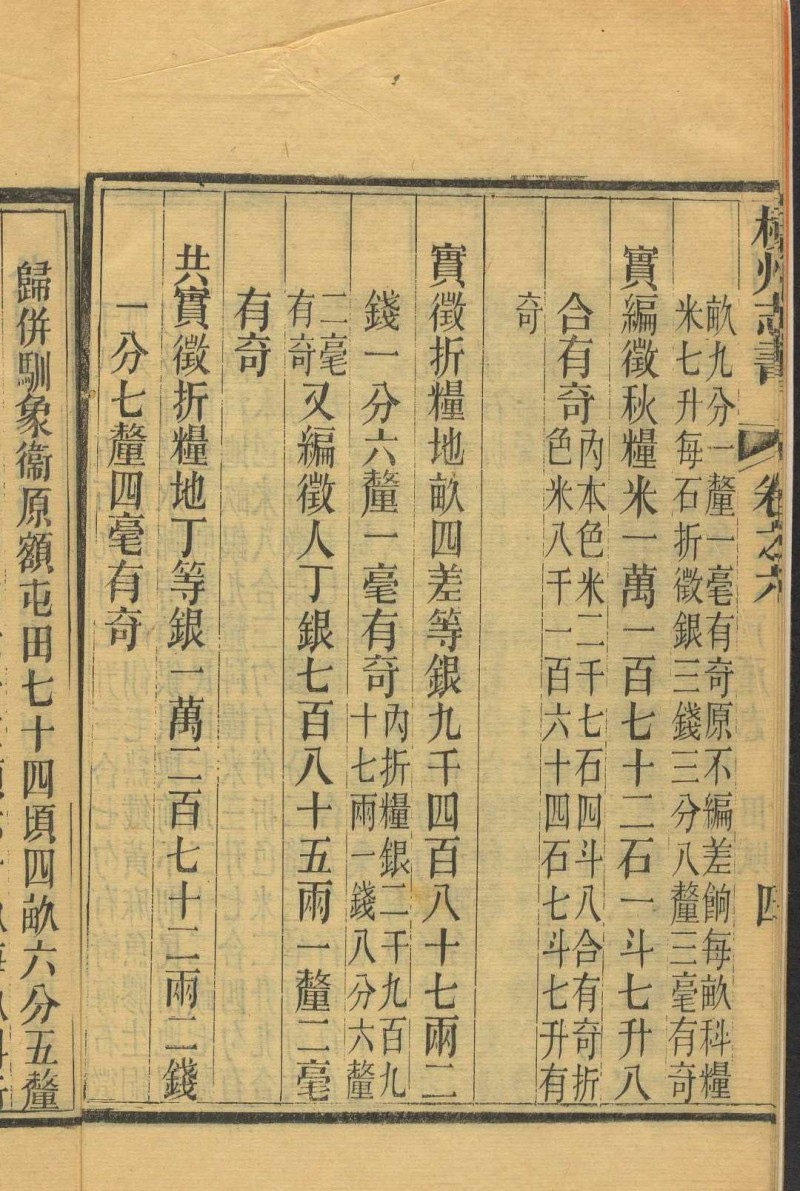 橫州志書 卷之六 四
畝九分一釐一毫有奇原不編差餉每畝科糧
米七升每石折徵銀三錢三分八釐三毫有奇
實編徵秋糧米一萬一百七十二石一斗七升八
合有奇
內本色米二千七石四斗八合有奇折
色米八千一百六十四石七斗七升有
奇
實徵折糧地畝四差等銀九千四百八十七兩二
錢一分六釐一毫有奇
內折糧銀二千九百九
十七兩一錢八分六釐
二毫
有奇
又編徵人丁銀七百八十五兩一釐二毫
有奇
共實徵折糧地丁等銀一萬二百七十二兩二錢
一分七釐四毫有奇
歸併馴象衞原額屯田七十四頃四畝六分五釐